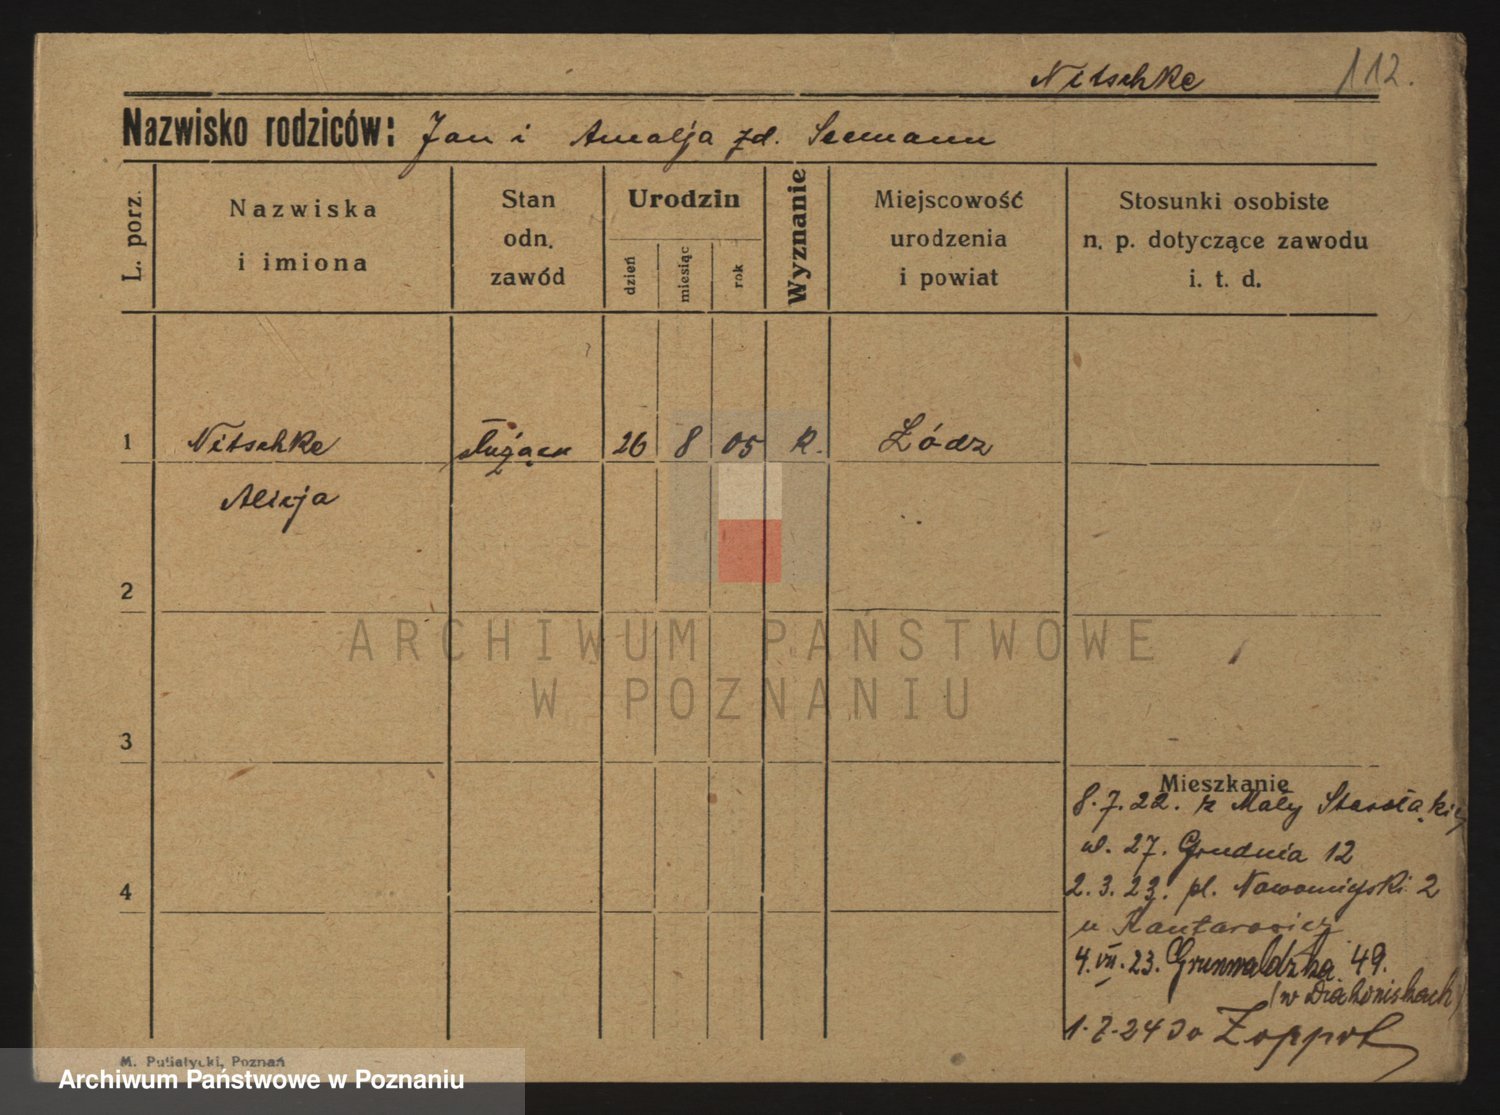 Nitschke
112.
Nazwisko rodziców: Jan i Amalja zd. Seemann
L. porz.
Nazwiska
i imiona
Stan
odn.
zawód
Urodzin
dzień
miesiąc
rok
Wyznanie
Miejscowość
urodzenia
i powiat
Stosunki osobiste
n. p. dotyczące zawodu
i. t. d.
1 Nitschke służąca 26 8 05 k. Łódz
Alicja
2
ARCHIWUM PAŃSTWOWE
W POZNANIU
3
Mieszkanie
8.7.22. z Mały
ul. 27. Grudnia 12
4
2.3.23. pl. Nowomiejski 2
u Kantarowicz
4.VII.23. Grunwaldzka 49.
(w Diakoniskach)
1.7.24 do Zoppot
M. Putiatycki, Poznań
Archiwum Państwowe w Poznaniu